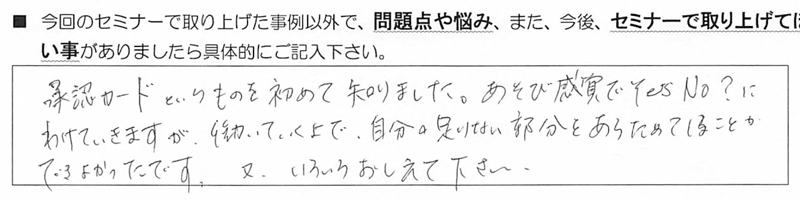 ■ 今回のセミナーで取り上げた事例以外で、問題点や悩み、また、今後、セミナーで取り上げてほ
い事がありましたら具体的にご記入下さい。
承認カードというものを初めて知りました。あそび感覚でYes No?に
わけていきますが、働いていく上で、自分の足りない部分をあらためてしることが
できよかったです。又、いろいろおしえて下さい。